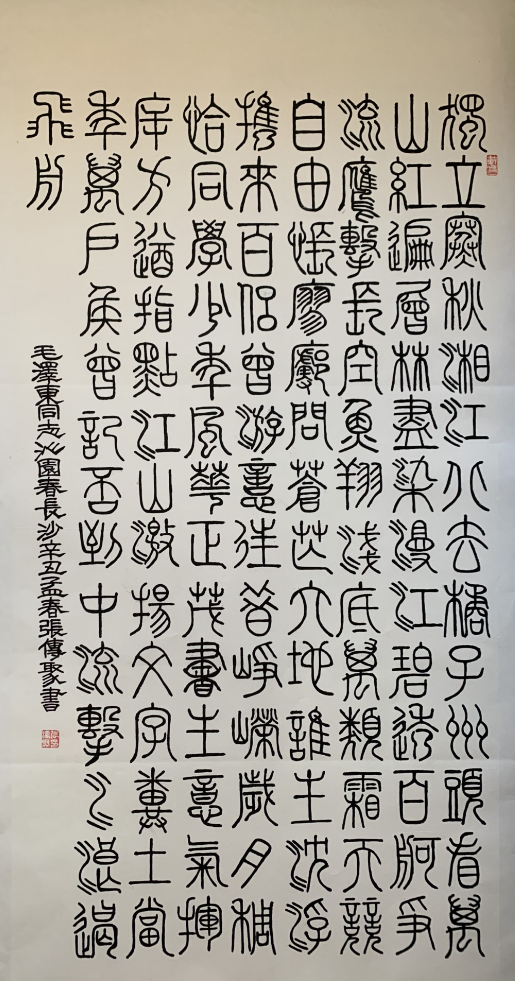 獨立寒秋湘江北去橘子洲頭看萬
山紅遍層林盡染漫江碧透百舸爭
流鷹擊長空魚翔淺底萬類霜天競
自由悵寥廓問蒼茫大地誰主沈浮
携來百侶曾游憶往昔崢嶸歲月稠
恰同學少年風華正茂書生意氣揮
斥方遒指點江山激揚文字糞土當
年萬戶侯曾記否到中流擊水浪遏
飛舟
毛澤東同志沁園春長沙辛丑孟春張傳聚書